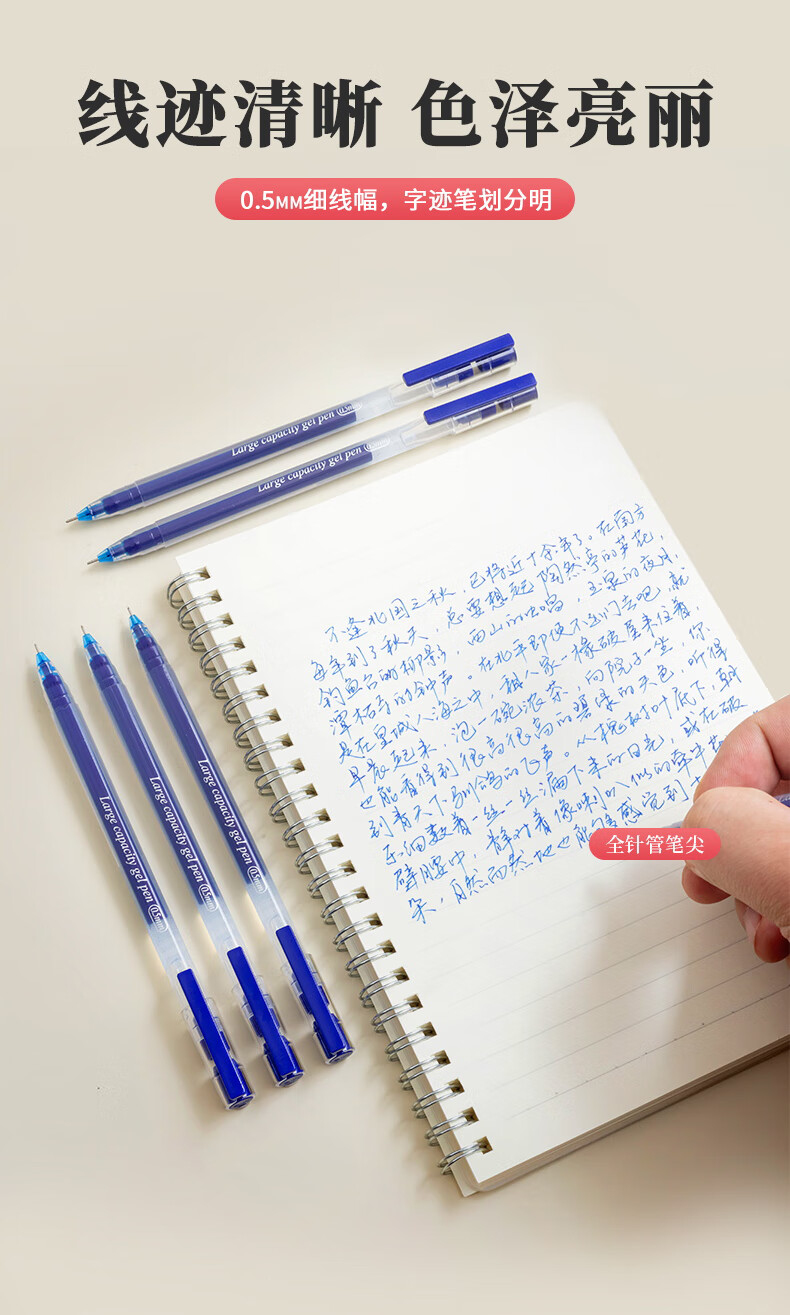 线迹清晰 色泽亮丽
0.5MM细线幅，字迹笔划分明
Large capacity gel pen 0.5mm
Large capacity gel pen 0.5mm
不逢北国之秋，已将近十余年了。在南方
每年到了秋天，总要想起陶然亭的芦花，
钓鱼台的柳影，西山的虫唱，玉泉的夜月，
潭柘寺的钟声。在北平即使不出门去吧，就
是在皇城人海之中，租人家一椽破屋来住着，
早晨起来，泡一碗浓茶，向院子一坐，你
也能看得到很高很高的碧绿的天色，听得
到青天下驯鸽的飞声。从槐树叶底下，朝
东细数着一丝一丝漏下来的日光，或在破
壁腰中，静对着像喇叭似的牵牛
朵，自然而然地也能够感觉到十
全针管笔尖
Large capacity gel pen 0.5mm
Large capacity gel pen 0.5mm
Large capacity gel pen 0.5mm